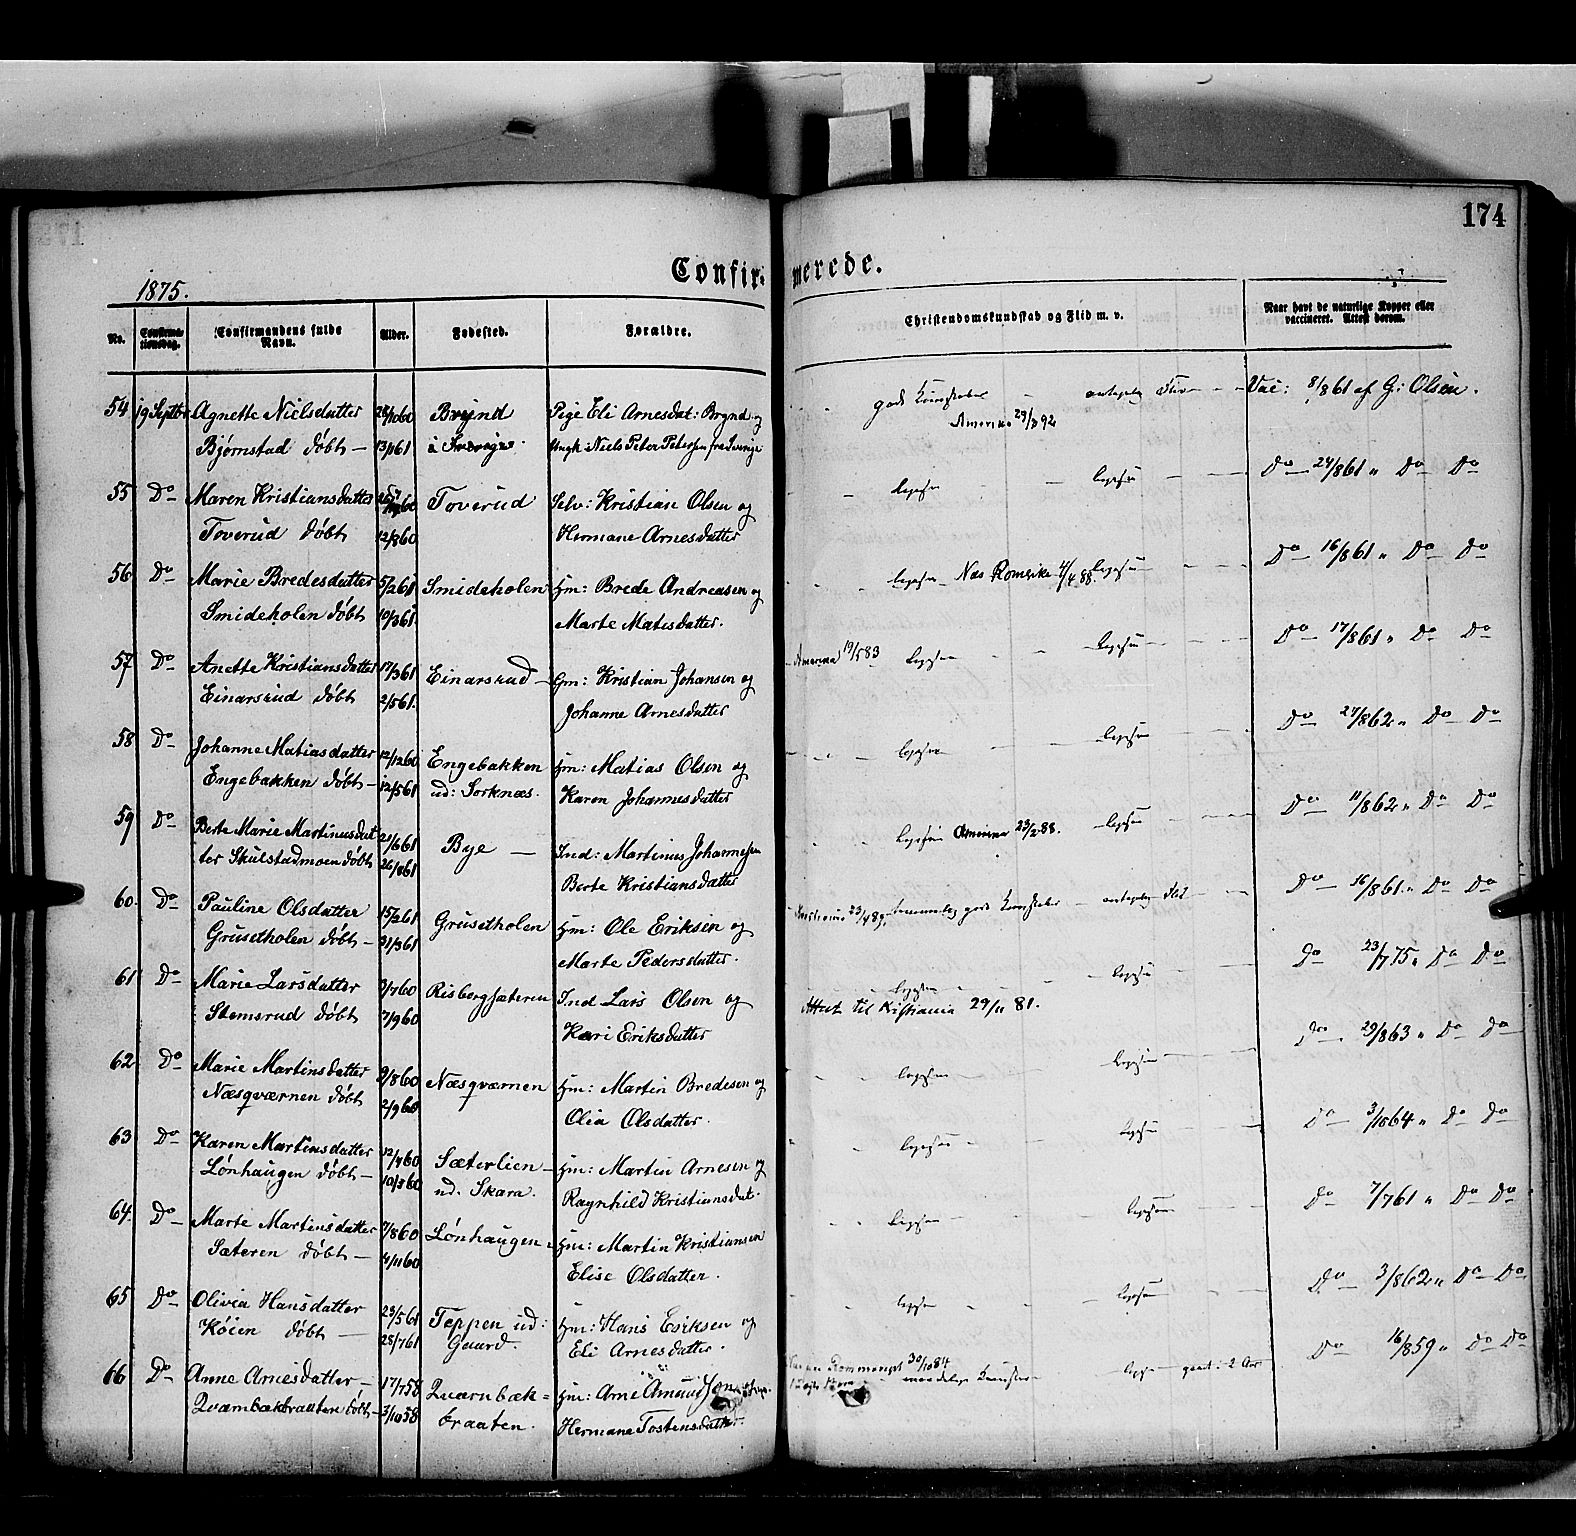 174
Confirmerede.
1875.
No.
Confirmationsdag.
Confirmandens fulde Navn.
Alder.
Fødested.
Forældre.
Christendomskundskab og Flid m. v.
Naar havt de naturlige Kopper eller vaccineret. Attest derom.
54 19 Septbr Agnette Nielsdatter 28/10 60 Brynd Pige Eli Arnesdat: Brynd og
Bjørnstad døbt — 13/1 61 i Sverige Ungk: Niels Peter Petersen fra Sverige
gode Kundskaber antagelig Flid Vac: 8/8 61 af G: Olsen.
Amerika 29/3 92
55 Do Maren Kristiansdatter Toverud Selv: Kristian Olsen og
Toverud døbt 12/8 60 Hermane Arnesdatter
ligesaa ligesaa Do 24/8 61 " Do Do
56 Do Marie Bredesdatter 5/2 61 Smideholen Hm: Brede Andreasen og
Smideholen døbt 10/3 61 Marte Matisdatter.
ligesaa Næs Romerike 4/4 88. ligesaa Do 16/8 61 " Do Do
57 Do Anette Kristiansdatter 17/3 61 Einarsrud — Gm: Kristian Johansen og
Einarsrud døbt 2/5 61. Johanne Arnesdatter
Amerika 19/5 83 ligesaa ligesaa Do 17/8 61 " Do Do
58 Do Johanne Matiasdatter 12/12 60 Engebakken Hm: Matias Olsen og
Engebakken døbt — 12/5 61 ud: Sorknæs. Karen Johannesdatter
ligesaa ligesaa Do 27/8 62 " Do Do
59 Do Berte Marie Martinusdat 21/6 61 Bye — Ind: Martinus Johannesen
ter Skulstadmoen døbt 26/8 61 Berte Kristiansdatter
ligesaa Amerika 23/2 88. ligesaa Do 11/8 62 " Do Do
60. Do Pauline Olsdatter 15/2 61 Grusetholen Hm: Ole Eriksen og
Grusetholen døbt — 31/3 61 Marte Pedersdatter.
Kristiania 23/4 89. temmelig gode Kundskaber — antagelig Flid Do 16/8 61 " Do Do
61 Do Marie Larsdatter 3/7 60 Risbergsæteren Ind Lars Olsen og
Stemsrud døbt 7/9 60 Kari Eriksdatter
ligesaa ligesaa Do 23/7 75 " Do Do
Attest til Kristiania 29/11 81.
62 Do Marie Martinsdatter 9/8 60 Næsqværnen Hm: Martin Bredesen og
Næsqværnen døbt 2/9 60 Olia Olsdatter.
ligesaa ligesaa Do 29/8 63 " Do Do
63 Do Karen Martinsdatter Sæterlien — Hm: Martin Arnesen og
Lønhaugen døbt — ud. Skara. Ragnhild Kristiansdat.
ligesaa ligesaa Do 3/10 64 " Do Do
64. Do Marte Martinsdatter 7/8 60 Lønhaugen Hm: Martin Kristiansen
Sæteren døbt — 4/11 60 Elise Olsdatter.
ligesaa ligesaa Do 7/7 61 " Do Do
65 Do Olivia Hansdatter 23/5 61 Teppen ud: Hm: Hans Eriksen og
Køien døbt — 28/7 61 Gaard. Eli Arnesdatter.
ligesaa ligesaa Do 3/8 62 " Do Do
66 Do Anne Arnesdatter — 17/7 58 Qværnbæk= Hm: Arne Amund
Qværnbækbraaten døbt — 3/10 58 braaten. Hermane Tostensdatter
30/10 84 maadelige Kundskaber ligesaa gaaet: 2 Aar Do 16/8 59 " Do Do